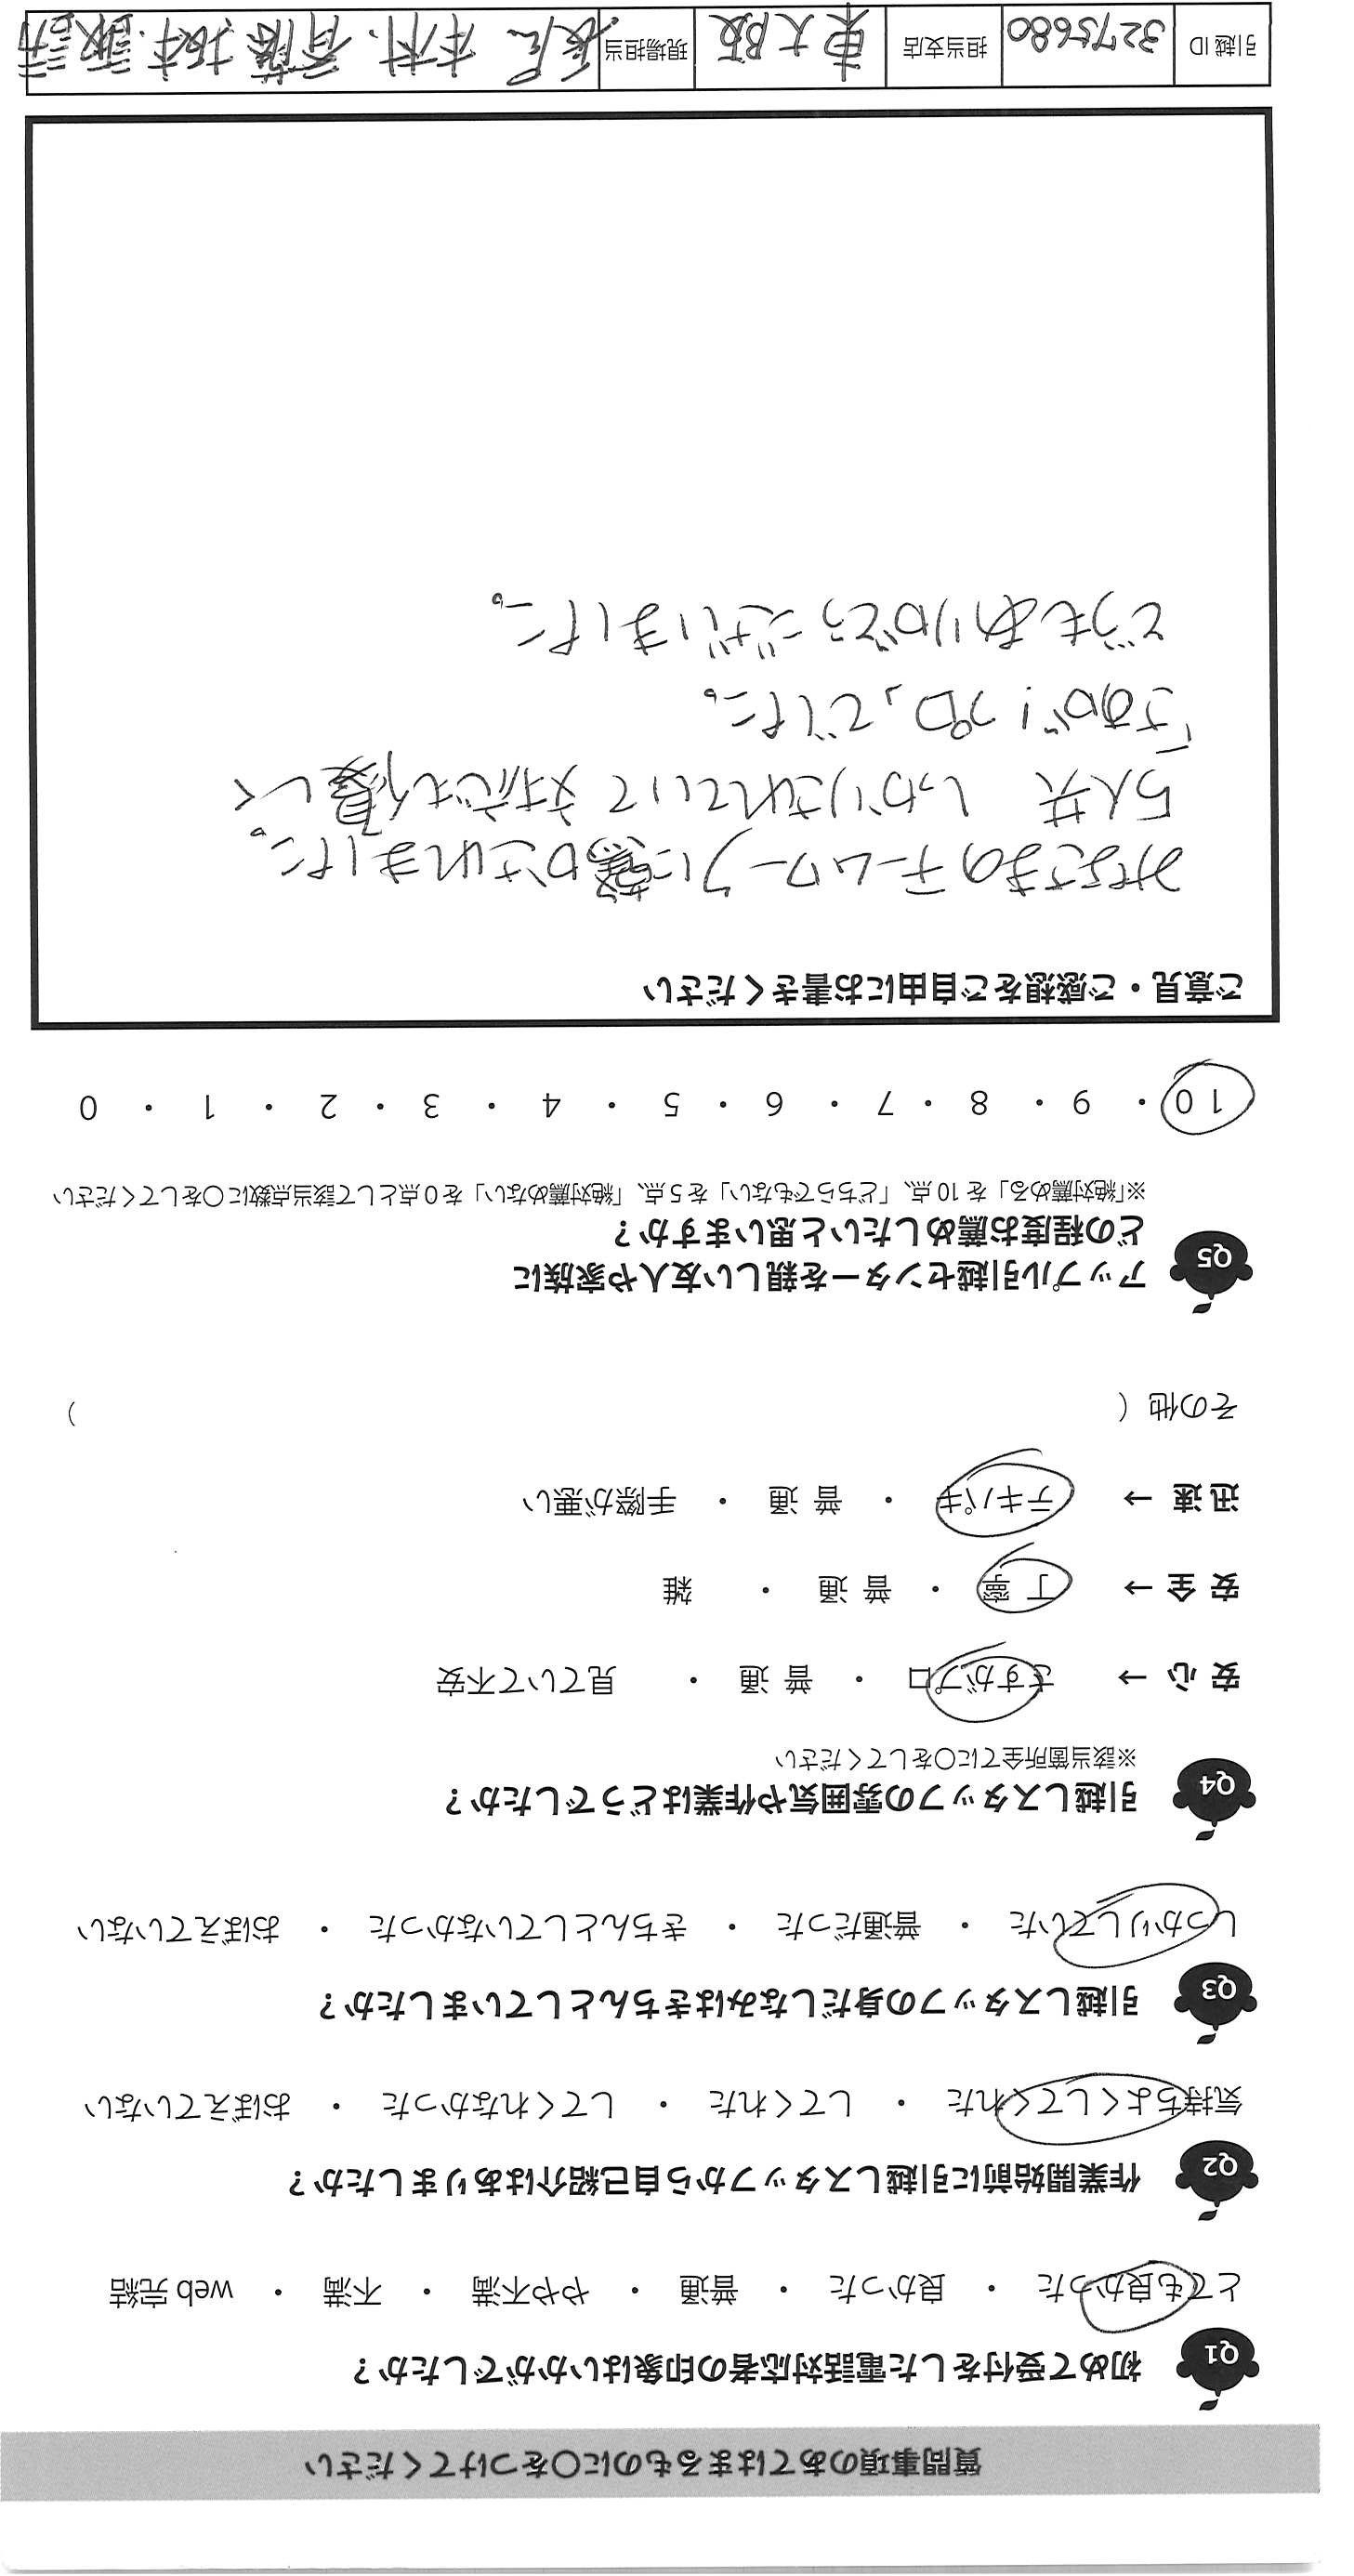 質問事項のあてはまるものに〇をつけてください
Q1 初めて受付をした電話対応者の印象はいかがでしたか？
とても良かった ・ 良かった ・ 普通 ・ やや不満 ・ 不満 ・ web 完結
Q2 作業開始前に引越しスタッフから自己紹介はありましたか？
気持ちよくしてくれた ・ してくれた ・ してくれなかった ・ おぼえていない
Q3 引越しスタッフの身だしなみはきちんとしていましたか？
しっかりしていた ・ 普通だった ・ きちんとしていなかった ・ おぼえていない
Q4 引越しスタッフの雰囲気や作業はどうでしたか？
※該当箇所全てに〇をしてください
安 心 → さすがプロ ・ 普 通 ・ 見ていて不安
安 全 → 丁 寧 ・ 普 通 ・ 雑
迅 速 → テキパキ ・ 普 通 ・ 手際が悪い
その他（ ）
Q5 アップル引越センターを親しい友人や家族に
どの程度お薦めしたいと思いますか？
※「絶対薦める」を 10 点、「どちらでもない」を 5 点、「絶対薦めない」を 0 点として該当点数に〇をしてください
10 ・ 9 ・ 8 ・ 7 ・ 6 ・ 5 ・ 4 ・ 3 ・ 2 ・ 1 ・ 0
ご意見・ご感想をご自由にお書きください
みなさまのチームワークに驚かされました。
5人共 しっかりされていて 対応も優しく
「さすが！プロ」でした。
どうもありがとうございました。
引越 ID 3275680 担当支店 東大阪 現場担当 長尾 木村、斉藤、坂本、諏訪